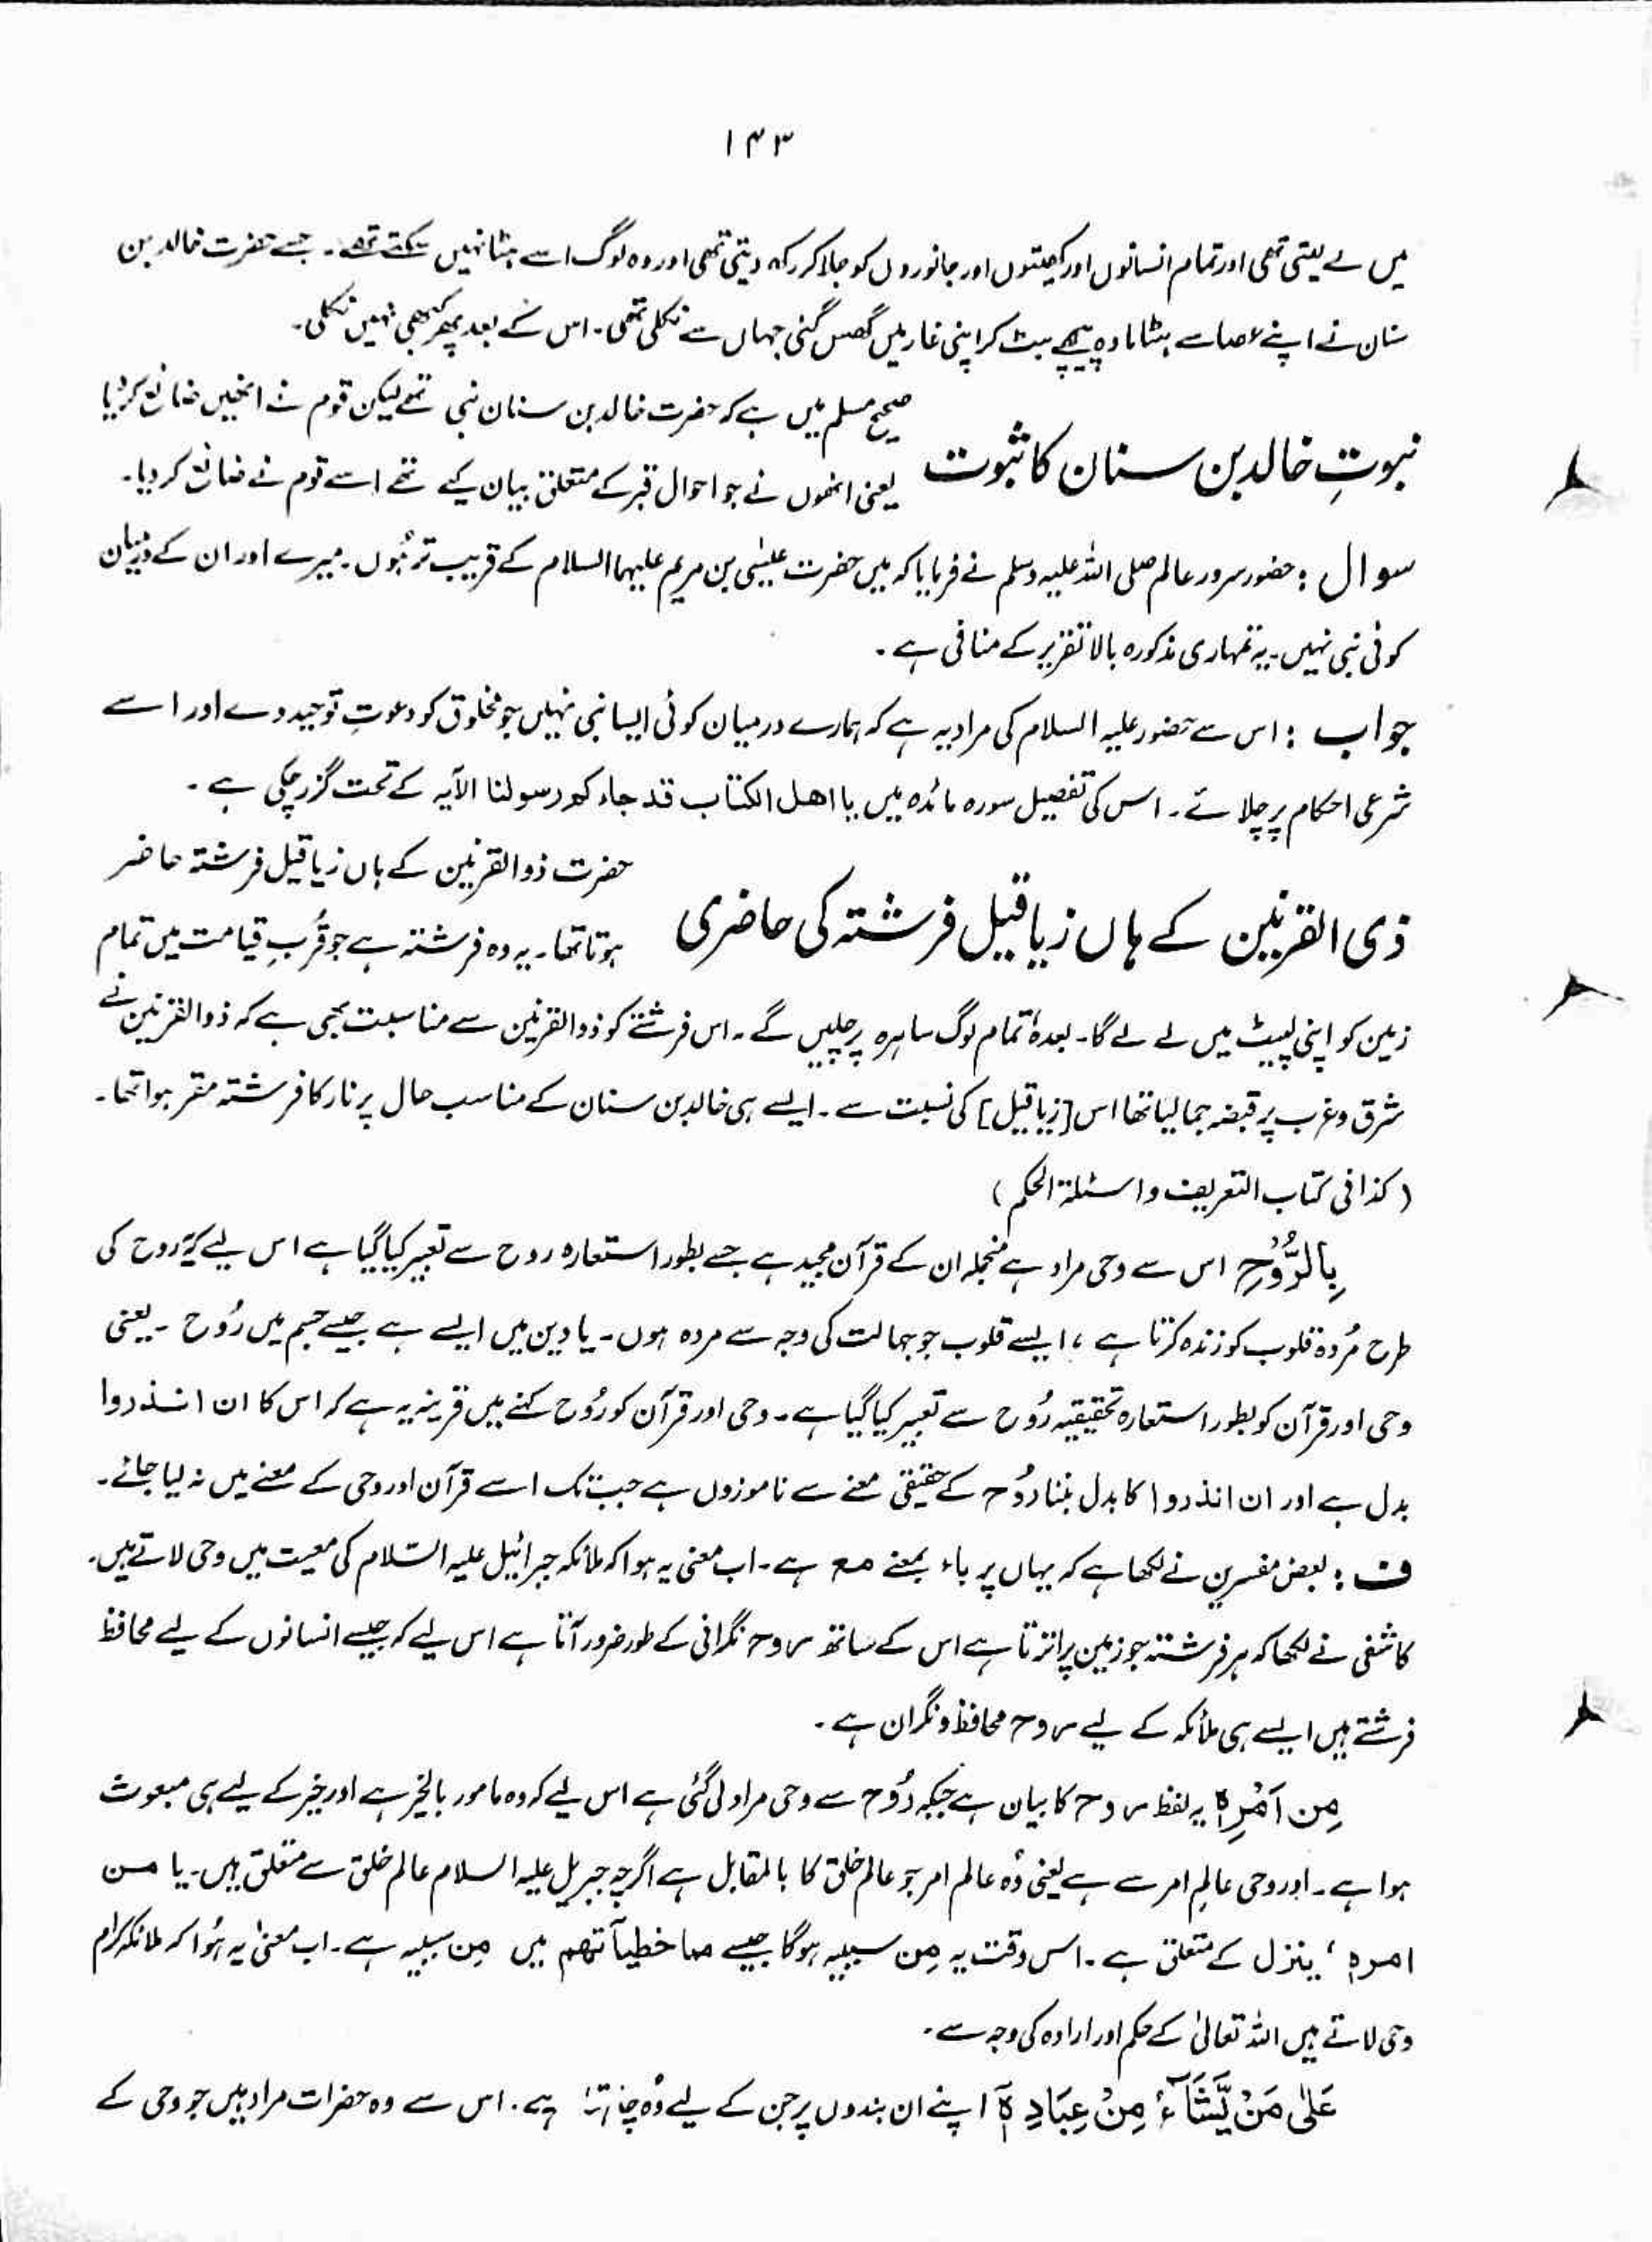 ۱۴۳
میں لے لیتی تھی اور تمام انسانوں اور کھیتوں اور جانوروں کو جلا کر رکھ دیتی تھی اور وہ لوگ اسے ہٹا نہیں سکتے تھے۔ جسے حضرت خالد بن
سنان نے اپنے عصا سے ہٹایا وہ پیچھے ہٹ کر اپنی غار میں گھس گئی جہاں سے نکلی تھی۔ اس کے بعد پھر کبھی نہیں نکلی۔
نبوتِ خالد بن سنان کا ثبوت
صحیح مسلم میں ہے کہ حضرت خالد بن سنان نبی تھے لیکن قوم نے انھیں ضائع کر دیا
یعنی انھوں نے جو احوال قبر کے متعلق بیان کیے تھے اسے قوم نے ضائع کر دیا۔
سوال : حضور سرور عالم صلی اللہ علیہ وسلم نے فرمایا کہ میں حضرت عیسٰی بن مریم علیہما السلام کے قریب تر ہُوں۔ میرے اور ان کے درمیان
کوئی نبی نہیں۔ یہ تمہاری مذکورہ بالا تقریر کے منافی ہے۔
جواب : اس سے حضور علیہ السلام کی مراد یہ ہے کہ ہمارے درمیان کوئی ایسا نبی نہیں جو مخلوق کو دعوتِ توحید دے اور اسے
شرعی احکام پر چلائے۔ اس کی تفصیل سورہ مائدہ میں یا اھل الکتاب قد جاء کم رسولنا الآیہ کے تحت گزر چکی ہے۔
ذی القرنین کے ہاں زیاقیل فرشتہ کی حاضری
حضرت ذوالقرنین کے ہاں زیاقیل فرشتہ حاضر
ہوتا تھا۔ یہ وہ فرشتہ ہے جو قُربِ قیامت میں تمام
زمین کو اپنی لپیٹ میں لے لے گا۔ بعدہٗ تمام لوگ ساہرہ پر چلیں گے۔ اس فرشتے کو ذوالقرنین سے مناسبت بھی ہے کہ ذوالقرنین نے
شرق و غرب پر قبضہ جما لیا تھا اس [زیاقیل] کی نسبت سے۔ ایسے ہی خالد بن سنان کے مناسب حال پر نار کا فرشتہ مقرر ہوا تھا۔
(کذا فی کتاب التعریف و اسئلۃ الحکم)
بِالرُّوْحِ اس سے وحی مراد ہے منجملہ ان کے قرآن مجید ہے جسے بطور استعارہ روح سے تعبیر کیا گیا ہے اس لیے کہ یہ روح کی
طرح مُردہ قلوب کو زندہ کرتا ہے ، ایسے قلوب جو جہالت کی وجہ سے مردہ ہوں۔ یا دین میں ایسے ہے جیسے جسم میں رُوح ۔ یعنی
وحی اور قرآن کو بطور استعارہ تحقیقیہ رُوح سے تعبیر کیا گیا ہے۔ وحی اور قرآن کو رُوح کہنے میں قرینہ یہ ہے کہ اس کا ان انذروا
بدل ہے اور ان انذروا کا بدل بننا رُوح کے حقیقی معنے سے ناموزوں ہے جب تک اسے قرآن اور وحی کے معنے میں نہ لیا جائے۔
ف : بعض مفسرین نے لکھا ہے کہ یہاں پر باء بمعنے مع ہے۔ اب معنی یہ ہوا کہ ملائکہ جبرائیل علیہ السّلام کی معیت میں وحی لاتے ہیں۔
کاشفی نے لکھا کہ ہر فرشتہ جو زمین پر اترتا ہے اس کے ساتھ روح نگرانی کے طور ضرور آتا ہے اس لیے کہ جیسے انسانوں کے لیے محافظ
فرشتے ہیں ایسے ہی ملائکہ کے لیے روح محافظ و نگران ہے۔
مِن اَمْرِہٖ یہ لفظ روح کا بیان ہے جبکہ رُوح سے وحی مراد لی گئی ہے اس لیے کہ وہ مامور بالخیر ہے اور خیر کے لیے ہی مبعوث
ہوا ہے۔ اور وحی عالمِ امر سے ہے یعنی وُہ عالم امر جو عالم خلق کا بالمقابل ہے اگرچہ جبریل علیہ السلام عالم خلق سے متعلق ہیں۔ یا من
امرہٖ ، ینزل کے متعلق ہے۔ اس وقت یہ مِن سببیہ ہوگا جیسے مما خطیآتھم میں مِن سببیہ ہے۔ اب معنیٰ یہ ہُوا کہ ملائکہ کرام
وحی لاتے ہیں اللہ تعالیٰ کے حکم اور ارادہ کی وجہ سے۔
عَلٰی مَنْ یَّشَآءُ مِنْ عِبَادِہٖٓ اپنے ان بندوں پر جن کے لیے وُہ چاہتا ہے۔ اس سے وہ حضرات مراد ہیں جو وحی کے